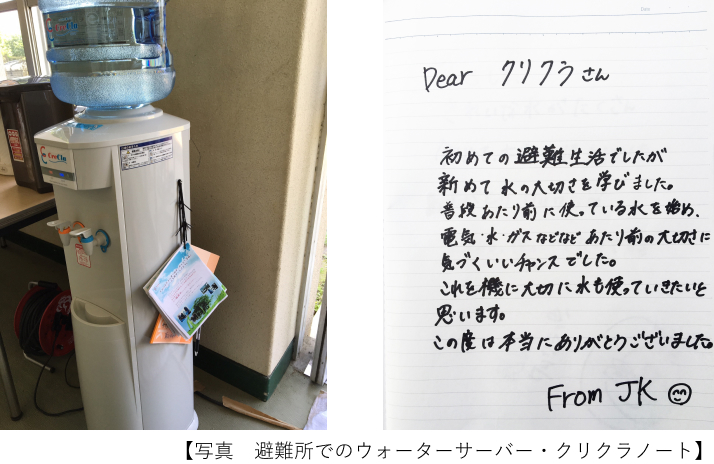 CreCla
Dear クリクラさん
初めての避難生活でしたが
新めて水の大切さを学びました。
普段あたり前に使っている水を始め、
電気・水・ガスなどなど あたり前の大切さに
気づくいいチャンスでした。
これを機に大切に水も使っていきたいと
思います。
この度は本当にありがとうございました。
From JK
【写真　避難所でのウォーターサーバー・クリクラノート】